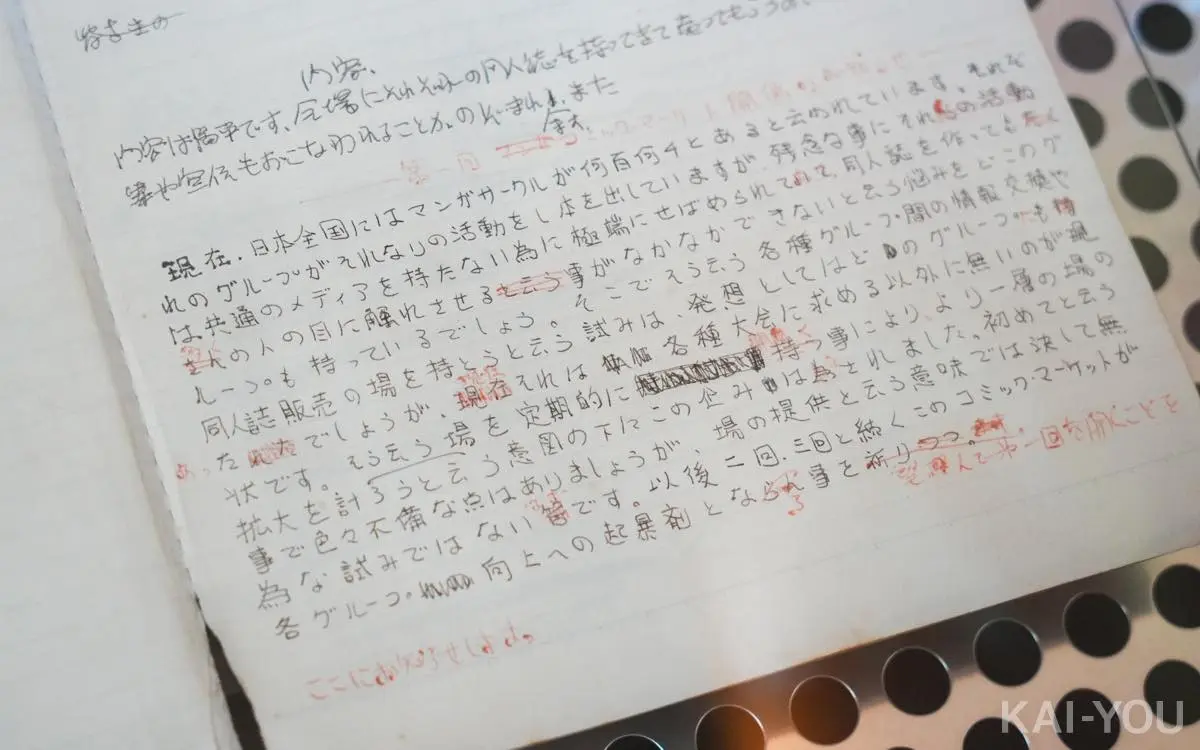 内容、
内容は簡単です、会場にそれぞれの同人誌を持ってきて売ってもらうの
集や宣伝もおこなわれることがのぞまれ、また
第一回
現在、日本全国にはマンガサークルが何百何千とあると云われています。それぞ
れのグループがそれなりの活動をし本を出していますが、残念な事にそれらの活動
は共通のメディアを持たない為に極端にせばめられてれて、同人誌を作っても
人の目に触れさせると云う事がなかなかできないと云う悩みをどこのグ
ループも持っているでしょう。そこでそう云う各種グループ間の情報交換や
同人誌販売の場を持とうと云う試みは、発想としてはどのグループにも
あったでしょうが、現在それは各種大会に求める以外に無いのが現
状です。そう云う場を定期的に持つ事により、より一層の場の
拡大を計ろうと云う意図の下にこの企みはされました。初めてと云う
事で色々不備な点はありましょうが、場の提供と云う意味では決して無
為な試みではない筈です。以後二回、三回と続くこのコミックマーケットが
各グループ向上への起爆剤とならん事を祈りつつ
第一回を開くことを
ここにお知らせします。
KAI-YOU